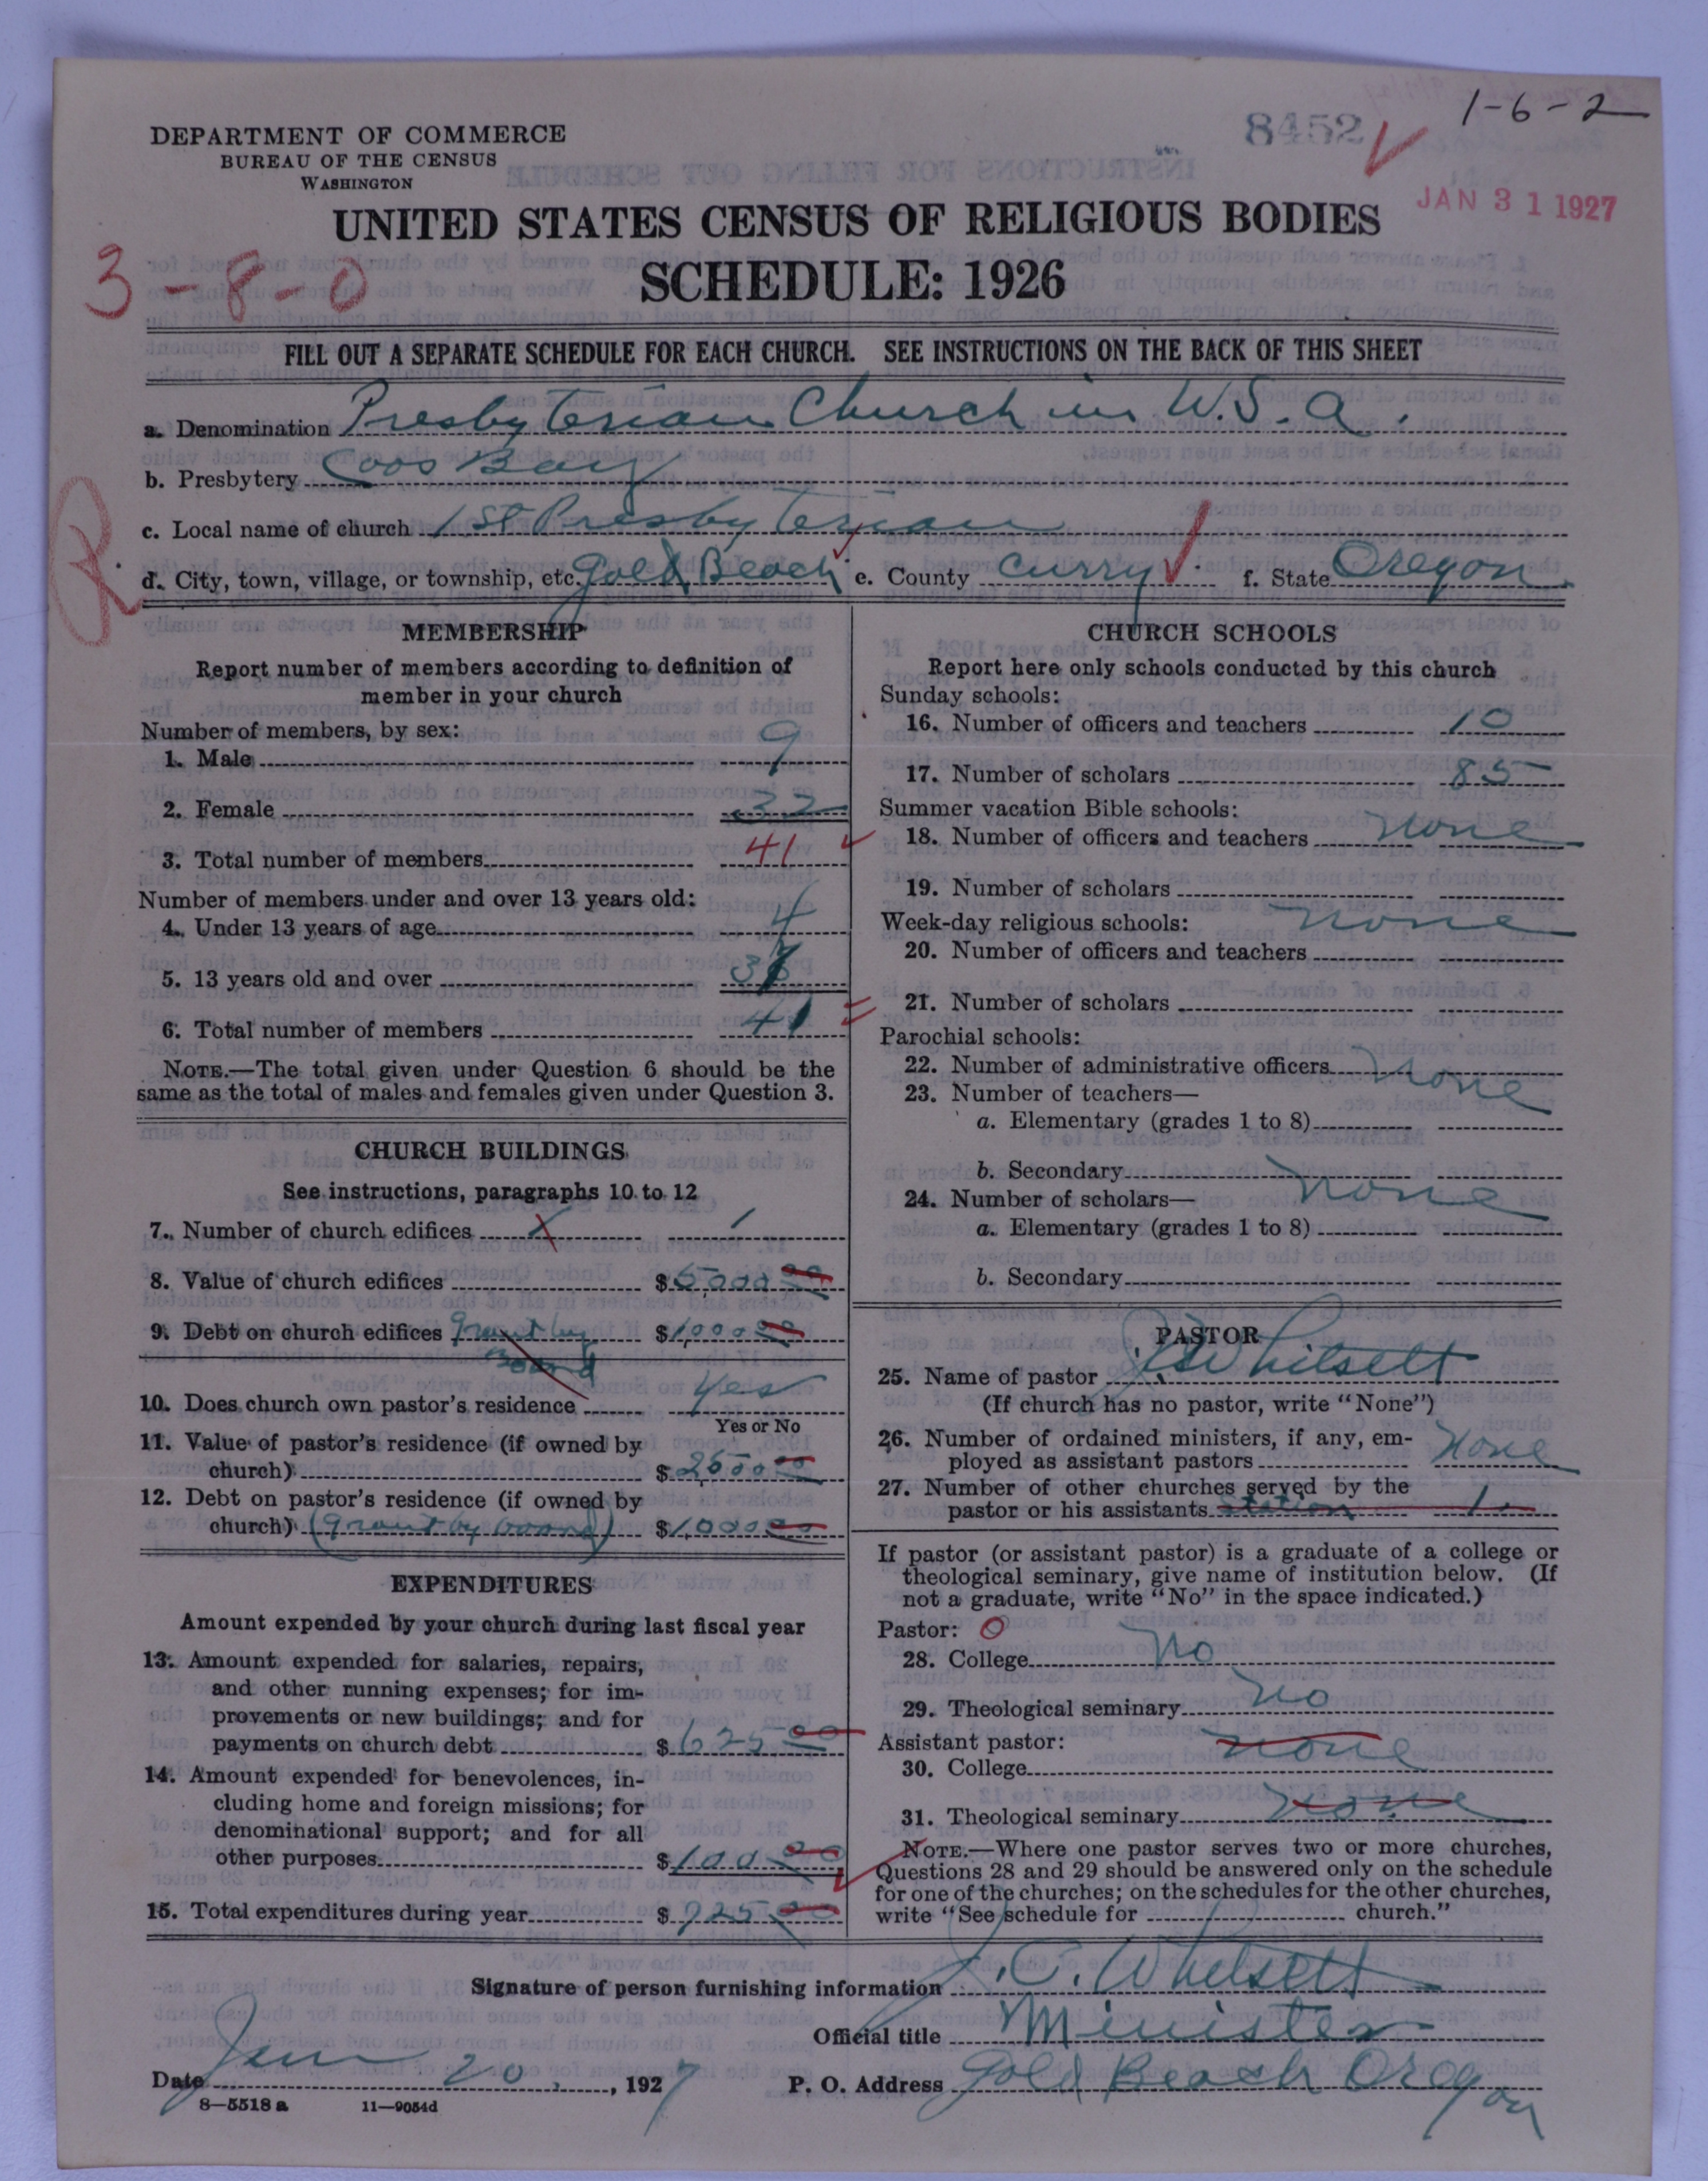 1-6-2
8452
JAN 31 1927
DEPARTMENT OF COMMERCE
BUREAU OF THE CENSUS
WASHINGTON
UNITED STATES CENSUS OF RELIGIOUS BODIES
SCHEDULE: 1926
3-8-0
FILL OUT A SEPARATE SCHEDULE FOR EACH CHURCH. SEE INSTRUCTIONS ON THE BACK OF THIS SHEET
a. Denomination Presbyterian Church in U.S.A.
b. Presbytery Coos Bay
c. Local name of church 1st Presbyterian
R
d. City, town, village, or township, etc. Gold Beach e. County Curry f. State Oregon
MEMBERSHIP
Report number of members according to definition of
member in your church
Number of members, by sex:
1. Male 9
2. Female 32
3. Total number of members 41
Number of members under and over 13 years old:
4. Under 13 years of age 4
5. 13 years old and over 37
6. Total number of members 41
NOTE.—The total given under Question 6 should be the
same as the total of males and females given under Question 3.
CHURCH BUILDINGS
See instructions, paragraphs 10 to 12
7. Number of church edifices 1
8. Value of church edifices $5,000 00
9. Debt on church edifices Grant by Board $1,000 00
10. Does church own pastor's residence Yes
Yes or No
11. Value of pastor's residence (if owned by
church) $2500 00
12. Debt on pastor's residence (if owned by
church) (Grant by board) $1,000 00
EXPENDITURES
Amount expended by your church during last fiscal year
13. Amount expended for salaries, repairs,
and other running expenses; for im-
provements or new buildings; and for
payments on church debt $625 00
14. Amount expended for benevolences, in-
cluding home and foreign missions; for
denominational support; and for all
other purposes $100 00
15. Total expenditures during year $725 00
CHURCH SCHOOLS
Report here only schools conducted by this church
Sunday schools:
16. Number of officers and teachers 10
17. Number of scholars 85
Summer vacation Bible schools:
18. Number of officers and teachers None
19. Number of scholars
Week-day religious schools: None
20. Number of officers and teachers
21. Number of scholars
Parochial schools:
22. Number of administrative officers None
23. Number of teachers—
a. Elementary (grades 1 to 8)
b. Secondary
24. Number of scholars— None
a. Elementary (grades 1 to 8)
b. Secondary
PASTOR
25. Name of pastor J.C. Whitsett
(If church has no pastor, write "None")
26. Number of ordained ministers, if any, em-
ployed as assistant pastors None
27. Number of other churches served by the
pastor or his assistants station 1
If pastor (or assistant pastor) is a graduate of a college or
theological seminary, give name of institution below. (If
not a graduate, write "No" in the space indicated.)
Pastor: 0
28. College No
29. Theological seminary No
Assistant pastor:
30. College None
31. Theological seminary None
NOTE.—Where one pastor serves two or more churches,
Questions 28 and 29 should be answered only on the schedule
for one of the churches; on the schedules for the other churches,
write "See schedule for church."
Signature of person furnishing information J.C. Whitsett
Official title Minister
Date Jan 20, 1927 P. O. Address Gold Beach Oregon
8—5518 a 11—9054d